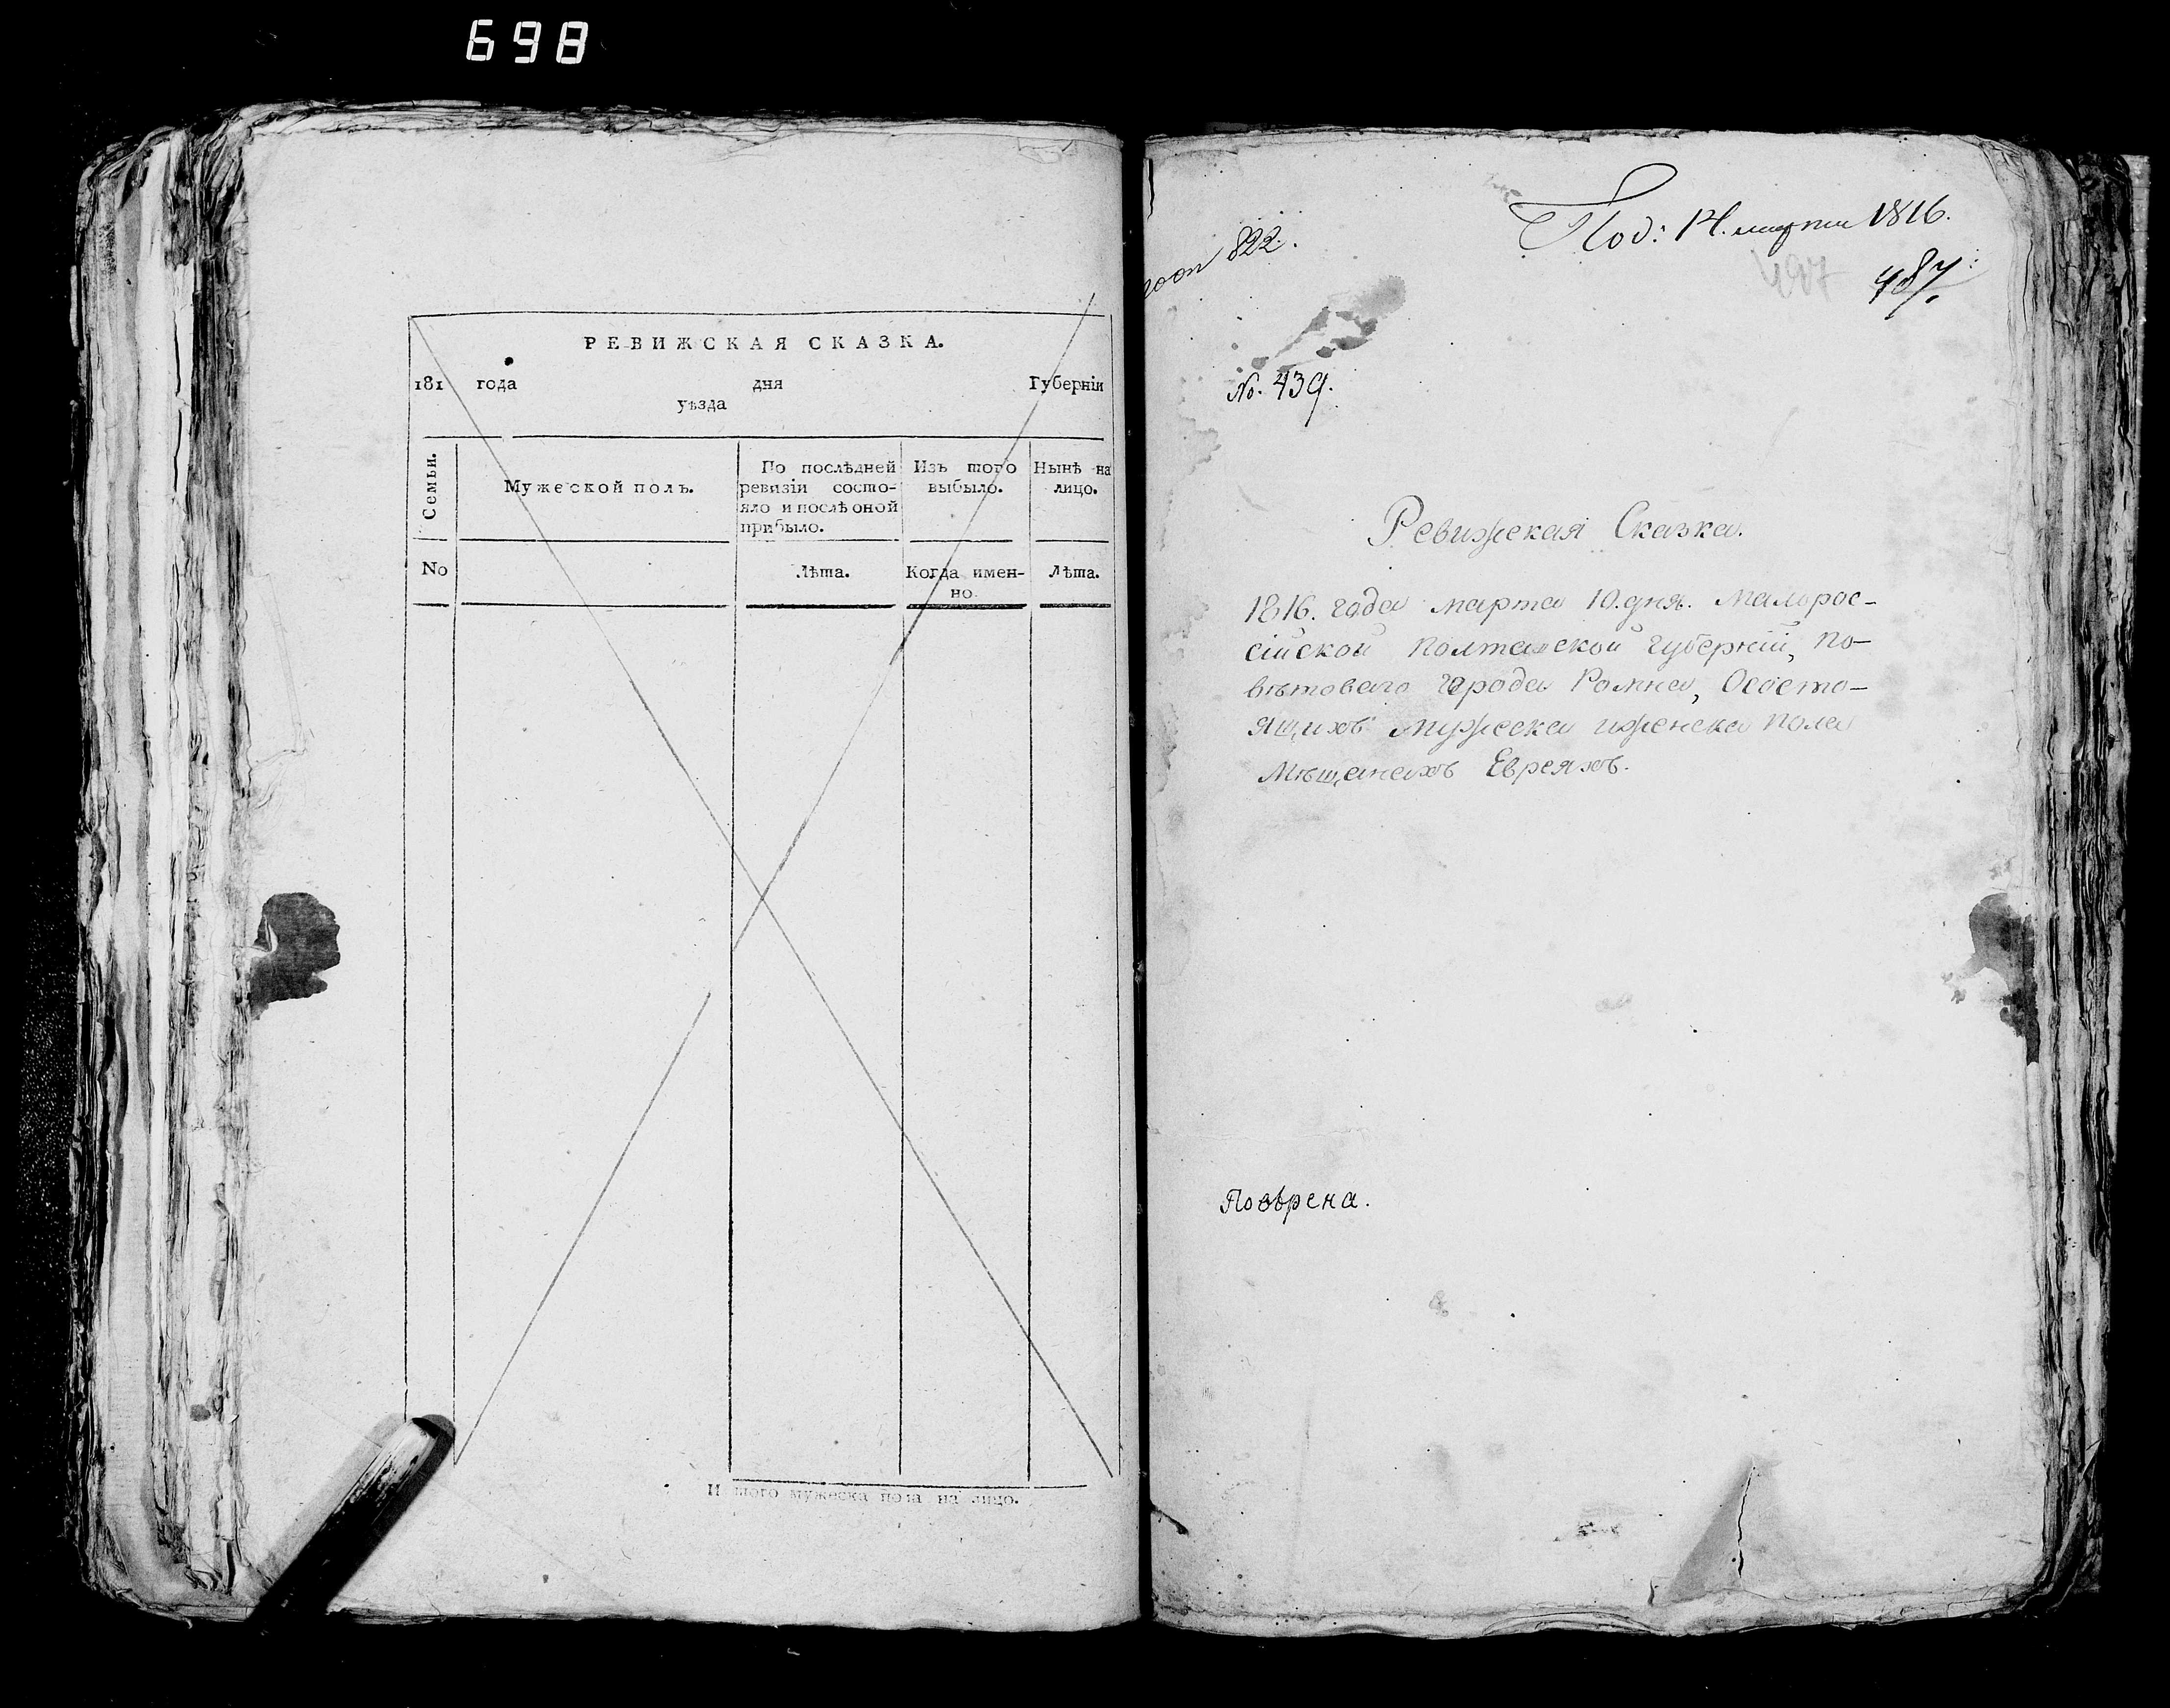 698
РЕВИЖСКАЯ СКАЗКА.
181 года дня Губерніи
уѣзда
Семьи.
Мужеской полъ.
По послѣдней
ревизіи состо-
яло и послѣ оной
прибыло.
Изъ того
выбыло.
Нынѣ на
лицо.
No
Лѣта.
Когда имен-
но.
Лѣта.
И того мужеска пола на лицо.
822.
Под: 14. марта 1816.
497
487.
No. 439.
Ревижская Сказка.
1816. года марта 10. дня. Малорос-
сійской Полтавской губерніи, по-
вѣтоваго города Ромна, Осостo-
ящихъ мужеска иженска пола
Мѣщанахъ Евреяхъ.
Повѣрена.